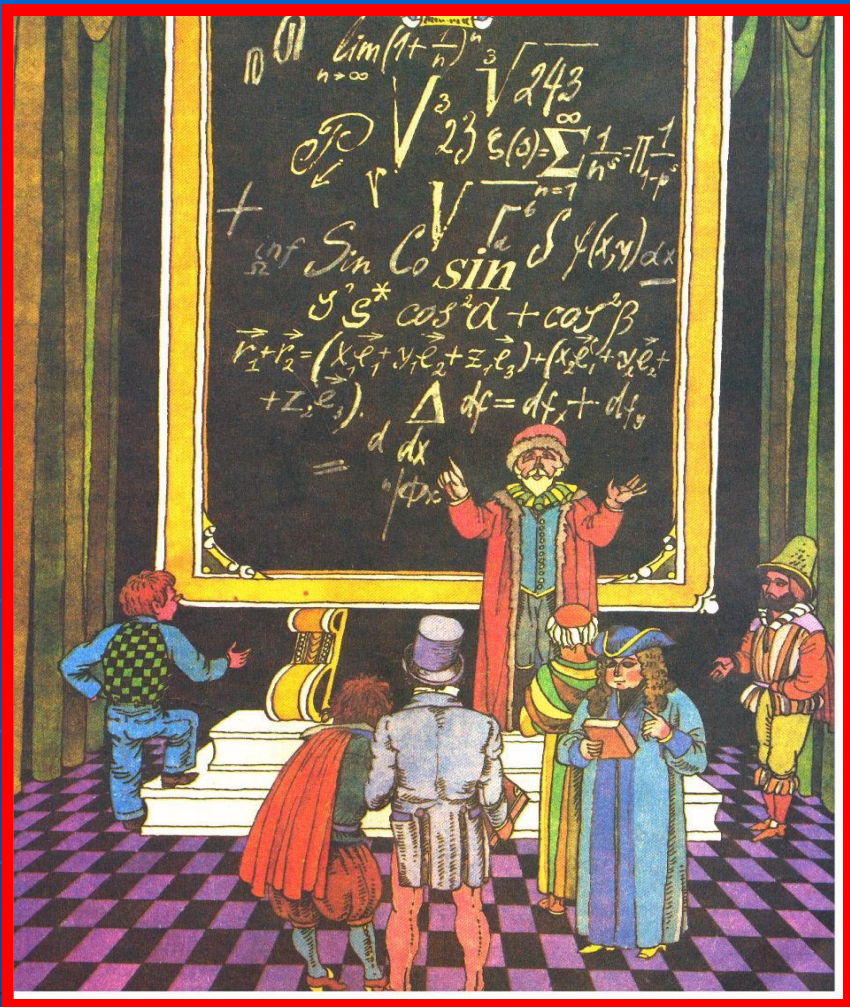 lim(1+1/n)^n
n→∞
∛243
√ 3 23 ξ(s)=∑ 1/n^s=∏ 1/1-p^s
∞
n=1
P
r
+ √ Γ a 6
inf Ω Sin Co sin S ψ(x,y)dx
y' S* cos²α + cos²β
r₁+r₂=(x₁e₁+y₁e₂+z₁e₃)+(x₂e₁+y₂e₂+
+z₂e₃). Δ df=df_x+df_y
d dx
=
φx